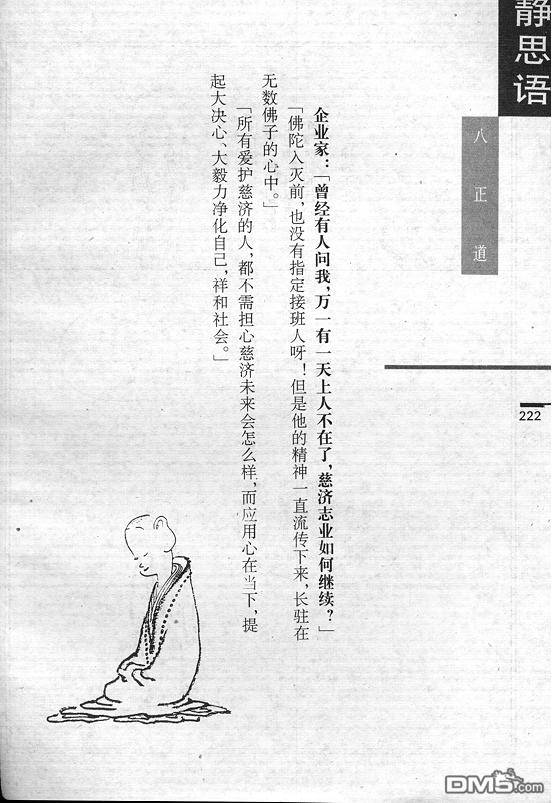 静思语
八正道
222
企业家：「曾经有人问我，万一有一天上人不在了，慈济志业如何继续？」
「佛陀入灭前，也没有指定接班人呀！但是他的精神一直流传下来，长驻在
无数佛子的心中。」
「所有爱护慈济的人，都不需担心慈济未来会怎么样，而应用心在当下，提
起大决心、大毅力净化自己，祥和社会。」
DM5.com